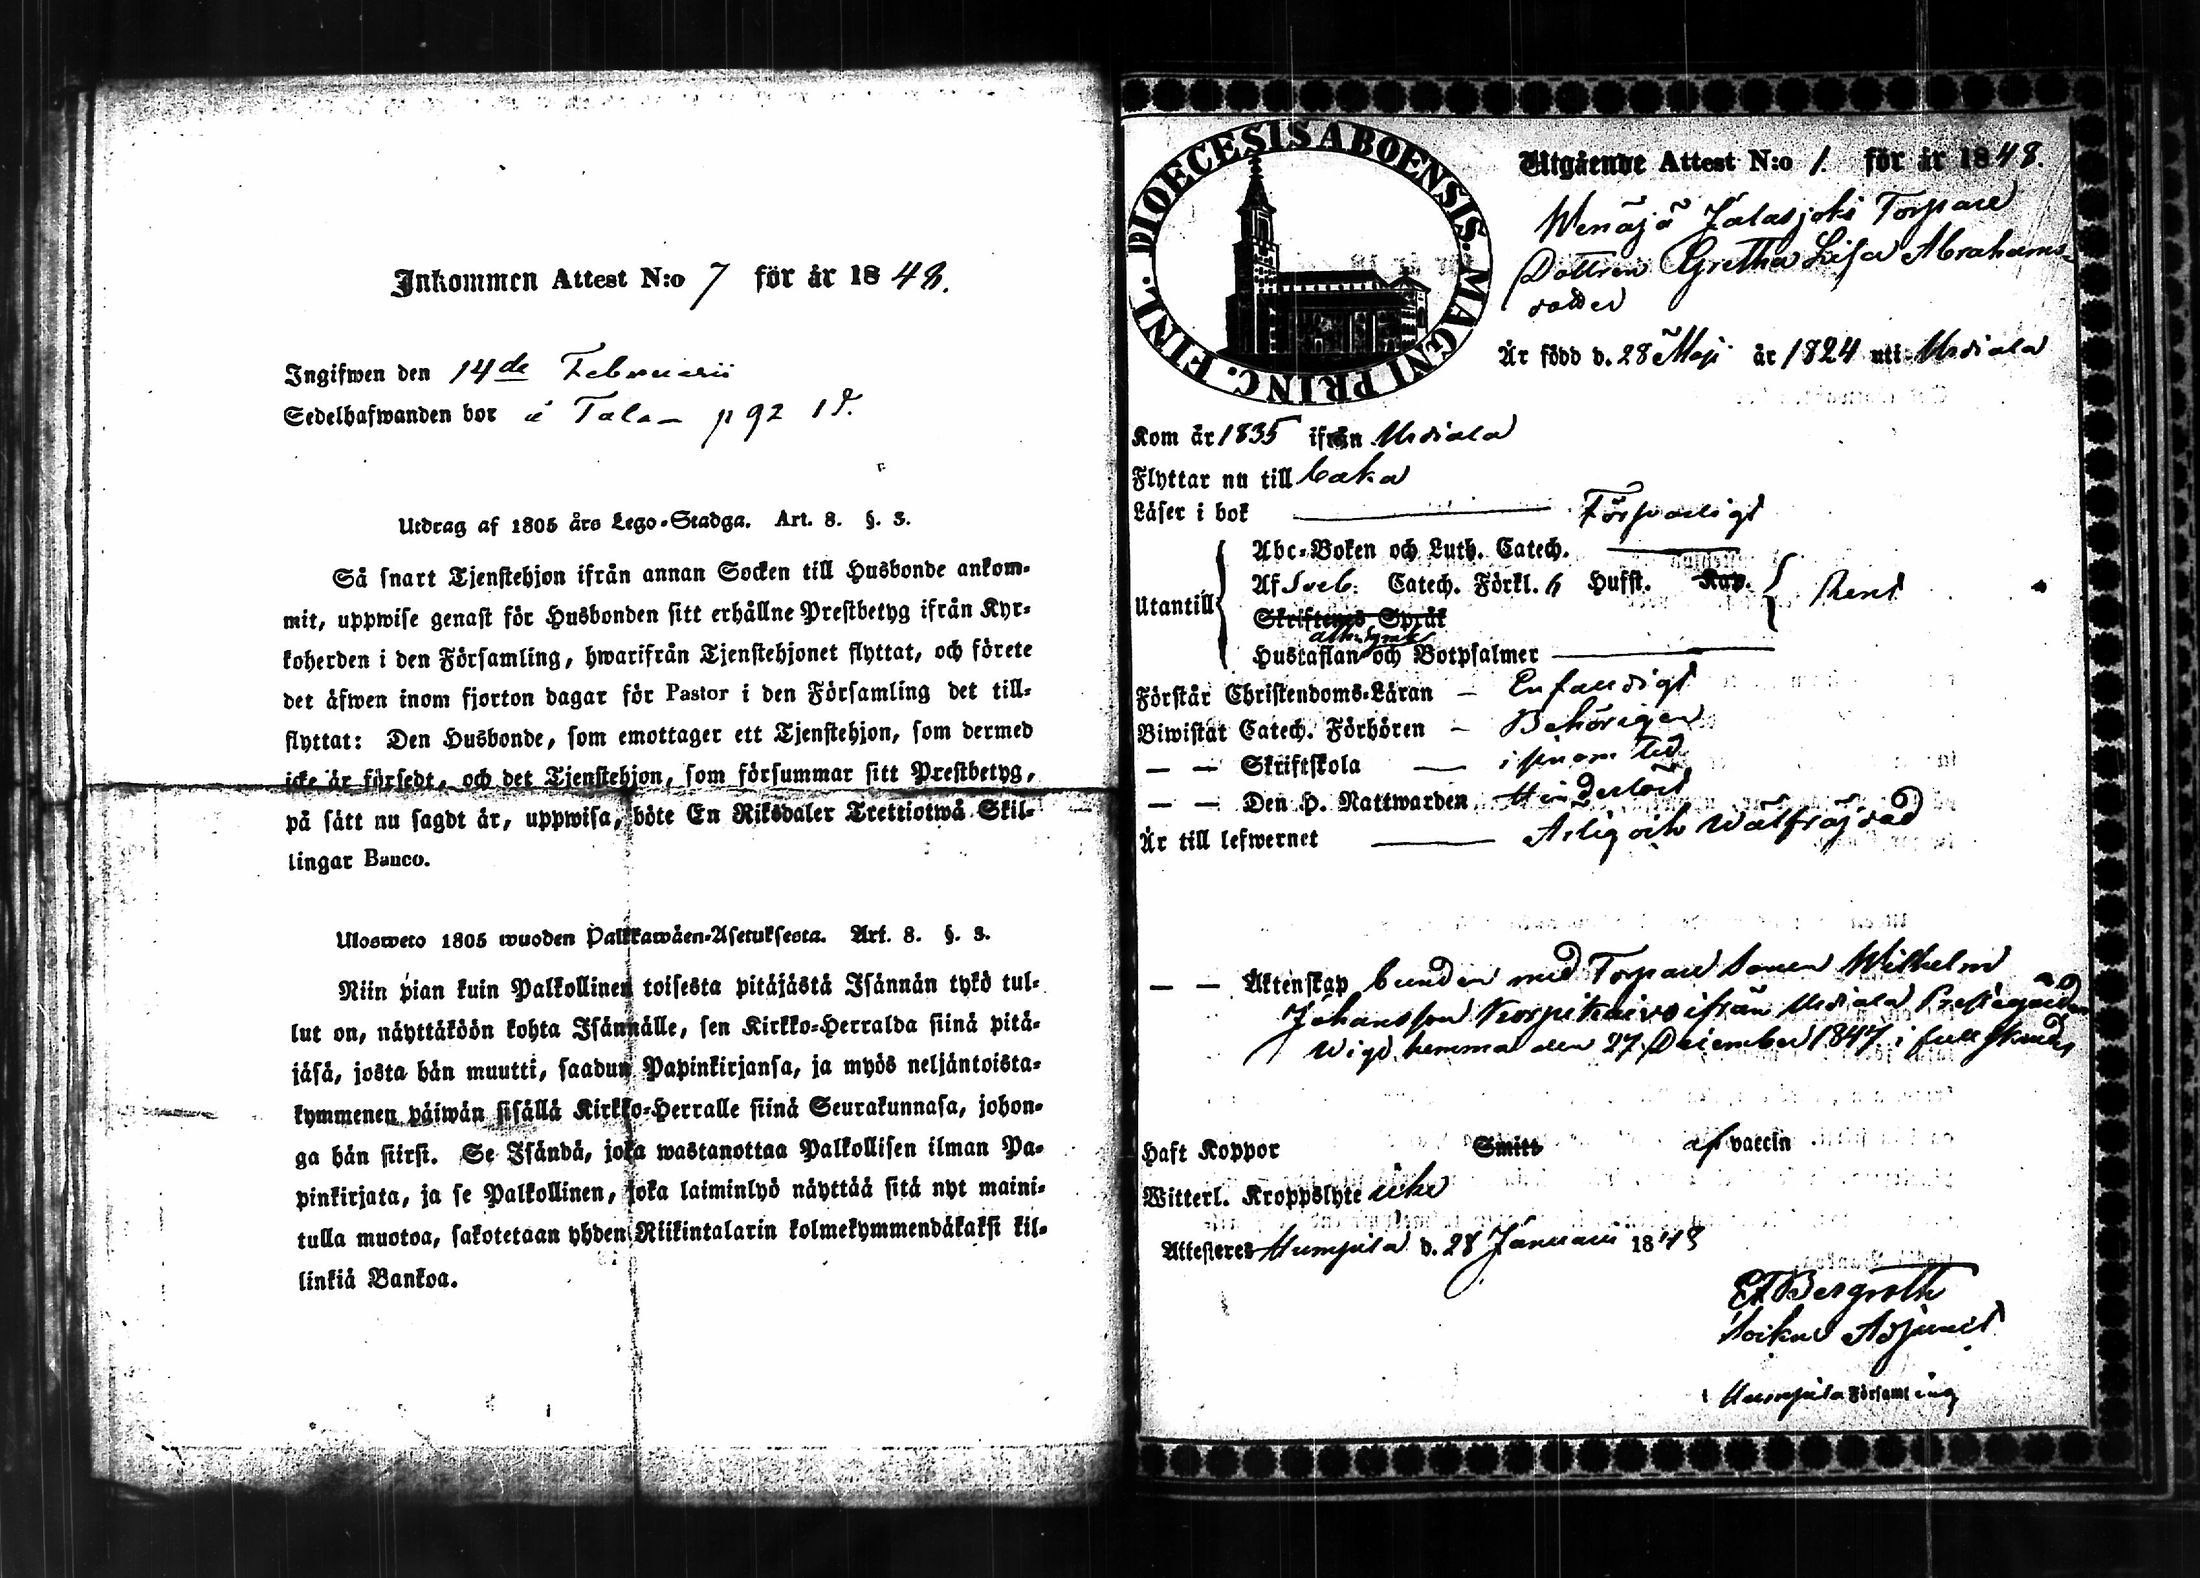 Inkommen Attest N:o 7 för år 1848.
Ingifwen den 14de Februarii
Sedelhafwanden bor å Tala p 92
Utdrag af 1805 års Lego-Stadga. Art. 8. §. 3.
Så snart Tjenstehjon ifrån annan Socken till Husbonde ankom-
mit, uppwise genast för Husbonden sitt erhållne Prestbetyg ifrån Kyr-
koherden i den Församling, hwarifrån Tjenstehjonet flyttat, och förete
det äfwen inom fjorton dagar för Pastor i den Församling det till-
flyttat: Den Husbonde, som emottager ett Tjenstehjon, som dermed
icke är försedt, och det Tjenstehjon, som försummar sitt Prestbetyg,
på sätt nu sagdt är, uppwisa, böte En Riksdaler Trettiotwå Skil-
lingar Banco.
Ulosweto 1805 wuoden Palkkawäen-Asetuksesta. Art. 8. §. 3.
Niin pian kuin Palkollinen toisesta pitäjästä Isännän tykö tul-
lut on, näyttäköön kohta Isännälle, sen Kirkko-Herralda siinä pitä-
jäsä, josta hän muutti, saadun Papinkirjansa, ja myös neljäntoista-
kymmenen päiwän sisällä Kirkko-Herralle siinä Seurakunnasa, johon-
ga hän siirsi. Se Isändä, joka wastanottaa Palkollisen ilman Pa-
pinkirjata, ja se Palkollinen, joka laiminlyö näyttää sitä nyt maini-
tulla muotoa, sakotetaan yhden Riikintalarin kolmekymmendäkaksi kil-
linkiä Bankoa.
DIOECESIS ABOENSIS. MAGNI PRINC. FINL.
Utgående Attest N:o 1. för år 1848.
Wenäjä Jalasjoki Torpare
Dottren Gretha Lisa Abrahams-
dotter
Är född d. 28 Maji år 1824 uti Urdiala
Kom år 1835 ifrån Urdiala
Flyttar nu till Caka
Läser i bok Förswarligt
Abc-Boken och Luth. Catech.
Utantill Af Sveb. Catech. Förkl. 6 Hufst. Kap. Rent
Skriftenes Språk
Ath. Symb.
Hustaflan och Botpsalmer
Förstår Christendoms-Läran Enfaldigt
Biwistat Catech. Förhören Behörigen
— — Skriftskola i sinom tid
— — Den H. Nattwarden Hinderlöst
Är till lefwernet Ärlig och Wälfräjdad
— — Äktenskap bunden med Torpare Sonen Wilhelm
Johansson Korpikaivo ifrån Urdiala Prestegård
Wigd hemma den 27 December 1847 i full
Haft Koppor Smitt af vaccin
Witterl. Kroppslyte icke
Attesteres Humpila d. 28 Januarii 1848
Bergroth
Sockne Adjunct
i Humpila Församling